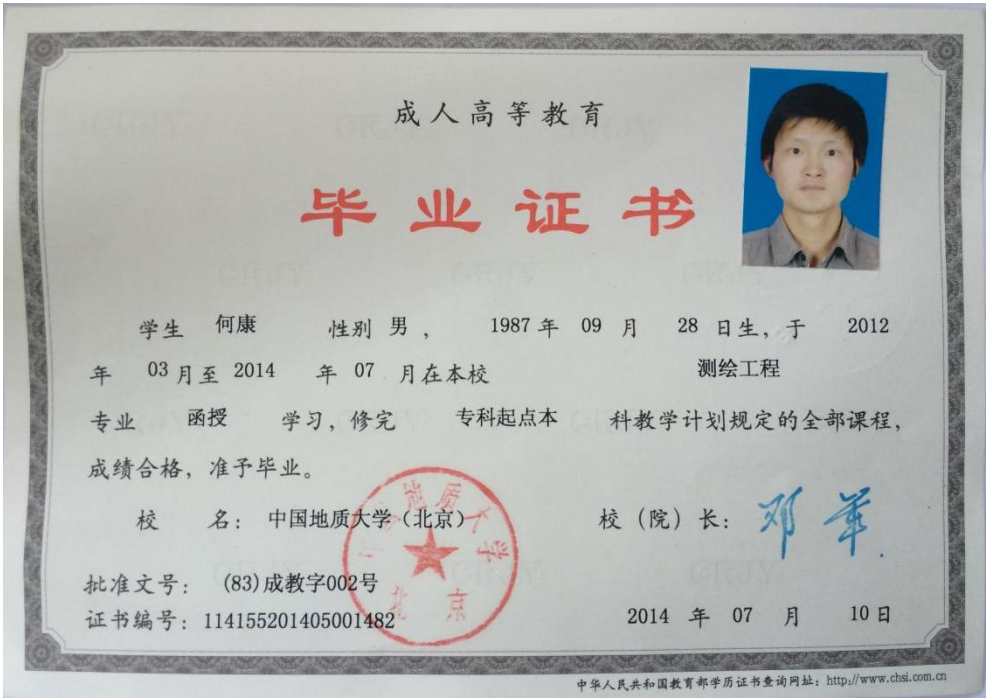 成人高等教育
毕业证书
学生 何康 性别 男, 1987 年 09 月 28 日生, 于 2012
年 03 月至 2014 年 07 月在本校 测绘工程
专业 函授 学习, 修完 专科起点本 科教学计划规定的全部课程,
成绩合格, 准予毕业。
校 名: 中国地质大学（北京） 校（院）长: 邓军
批准文号: (83)成教字002号
证书编号: 114155201405001482 2014 年 07 月 10日
中国地质大学
北京
中华人民共和国教育部学历证书查询网址: http://www.chsi.com.cn